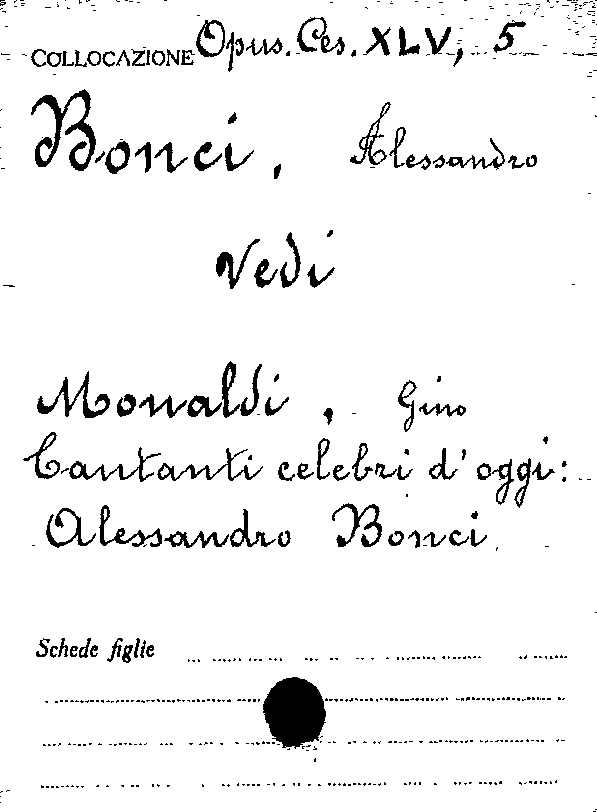 COLLOCAZIONE Opus. Ces. XLV, 5
Bonci, Alessandro
Vedi
Monaldi, Gino
Cantanti celebri d'oggi:
Alessandro Bonci
Schede figlie